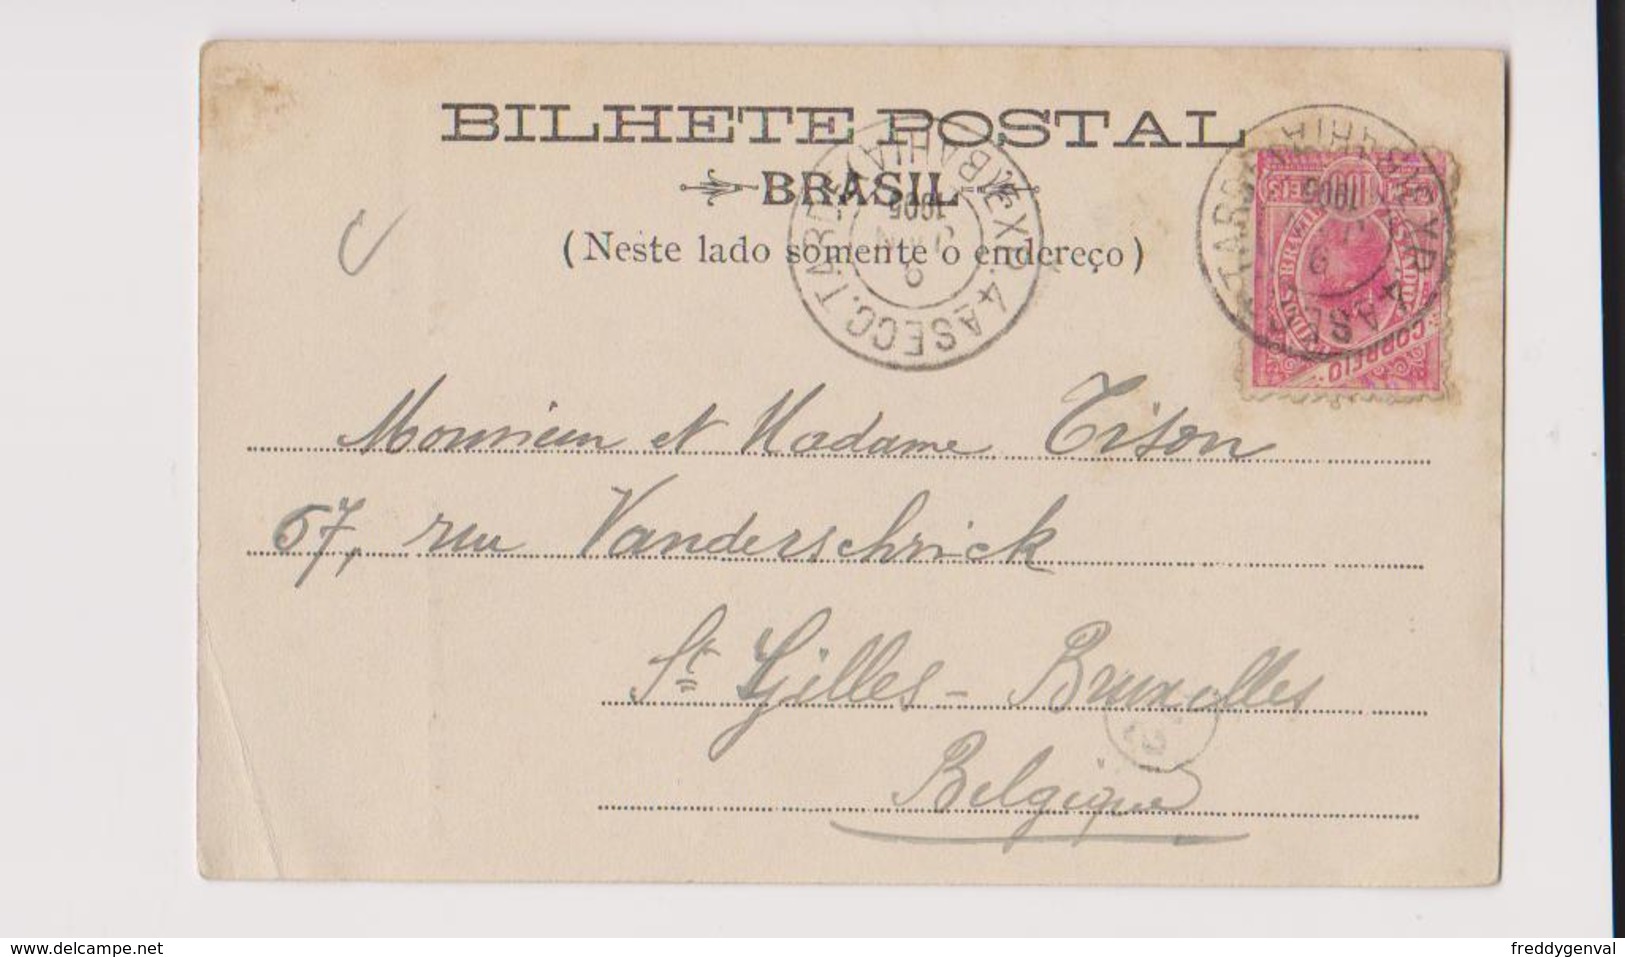 BILHETE POSTAL
BRASIL
(Neste lado somente o endereço)
EXP. 4ASECC. TARDE
BAHIA
9 JAN 1905
100 REIS
CORREIO
Monsieur et Madame Tison
67, rue Vanderschrick
St Gilles - Bruxelles
Belgique
www.delcampe.net
freddygenval